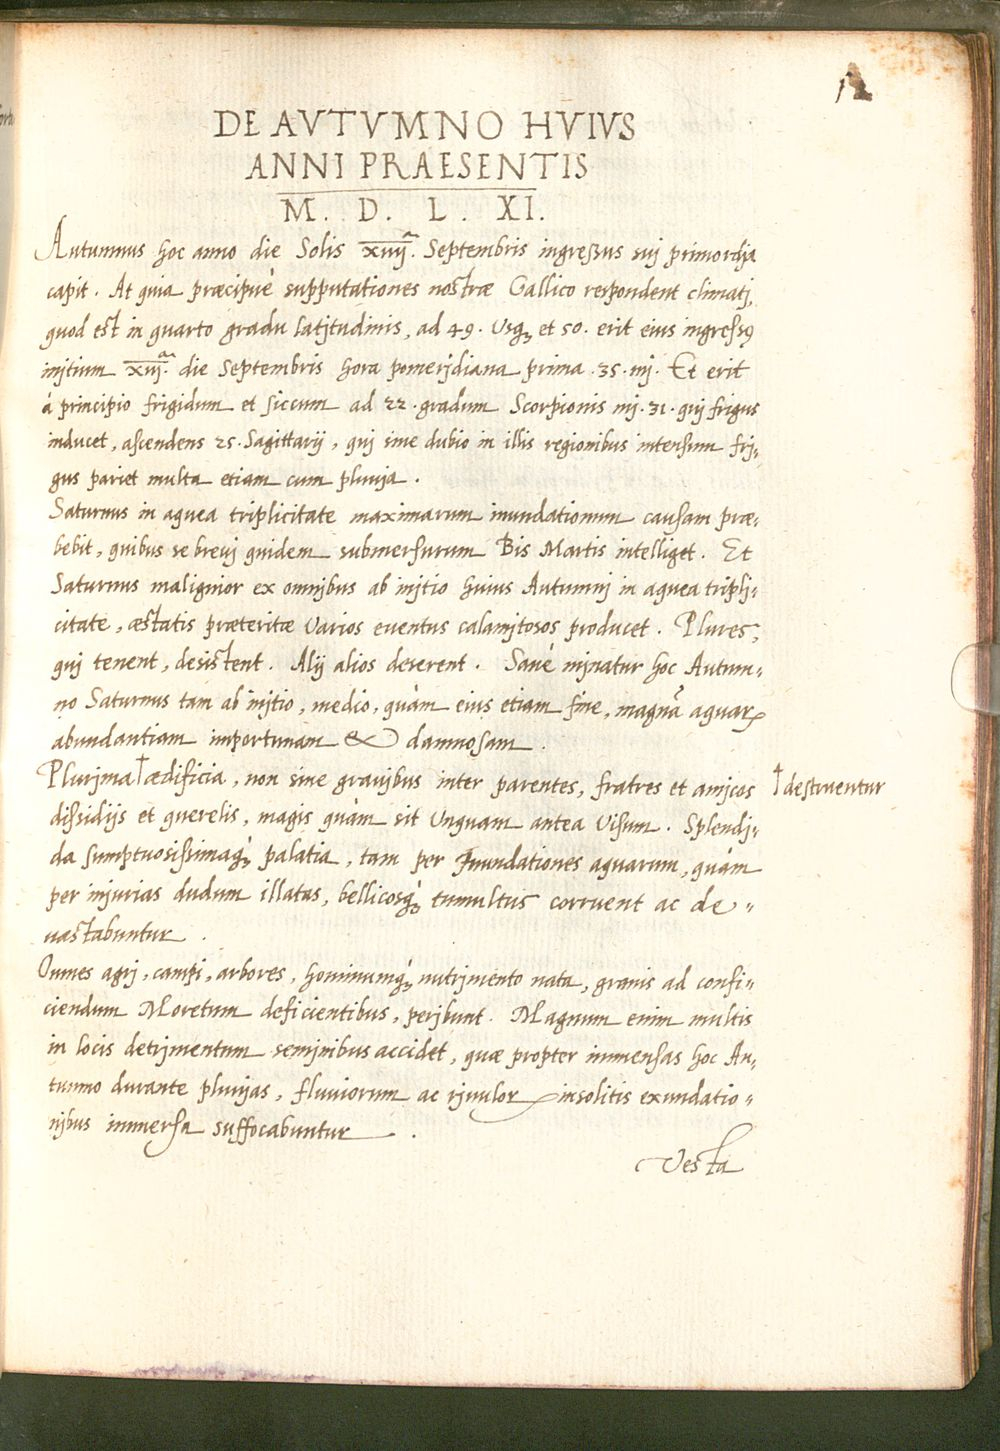 12
DE AVTVMNO HVIVS
ANNI PRAESENTIS
M. D. L. XI.
Autumnus hoc anno die Solis xiiij.ᵃ Septembris ingressus sui primordia
capit. At quia præcipuè supputationes nostræ Gallico respondent climati,
quod est in quarto gradu latitudinis, ad 49. Usq; et 50. erit eius ingressꝰ
initium xiij.ᵃ die Septembris hora pomeridiana prima .35. mi. Et erit
à principio frigidum et siccum ad 22. gradum Scorpionis mi. 31. qui frigus
inducet, ascendens 25. Sagittarij, qui sine dubio in illis regionibus intensum fri„
gus pariet multa etiam cum pluvia.
Saturnus in aquea triplicitate maximarum inundationum causam præ„
bebit, quibus se brevi quidem submersurum Bis Martis intelliget. Et
Saturnus malignior ex omnibus ab initio huius Autumni in aquea tripli„
citate, æstatis præteritæ Varios eventus calamitosos producet. Plures,
qui tenent, desistent. Alij alios deserent. Sanè minatur hoc Autum„
no Saturnus tam ab initio, medio, quàm eius etiam fine, magnã aquarꝝ
abundantiam importunam & damnosam.
Plurima†ædificia, non sine gravibus inter parentes, fratres et amicos †destruentur
dissidijs et querelis, magis quàm sit Unquam antea Visum. Splendi„
da sumptuosissimaq; palatia, tam per Inundationes aquarum, quàm
per injurias dudum illatas, bellicosq; tumultus corruent ac de„
vastabuntur.
Omnes agri, campi, arbores, hominumq; nutrimento nata, granis ad confi„
ciendum Moretum deficientibus, peribunt. Magnum enim multis
in locis detrimentum seminibus accidet, quæ propter immensas hoc Au„
tumno durante pluvias, fluviorum ac rivulorꝝ insolitis exundatio„
nibus immersa suffocabuntur.
Vesta